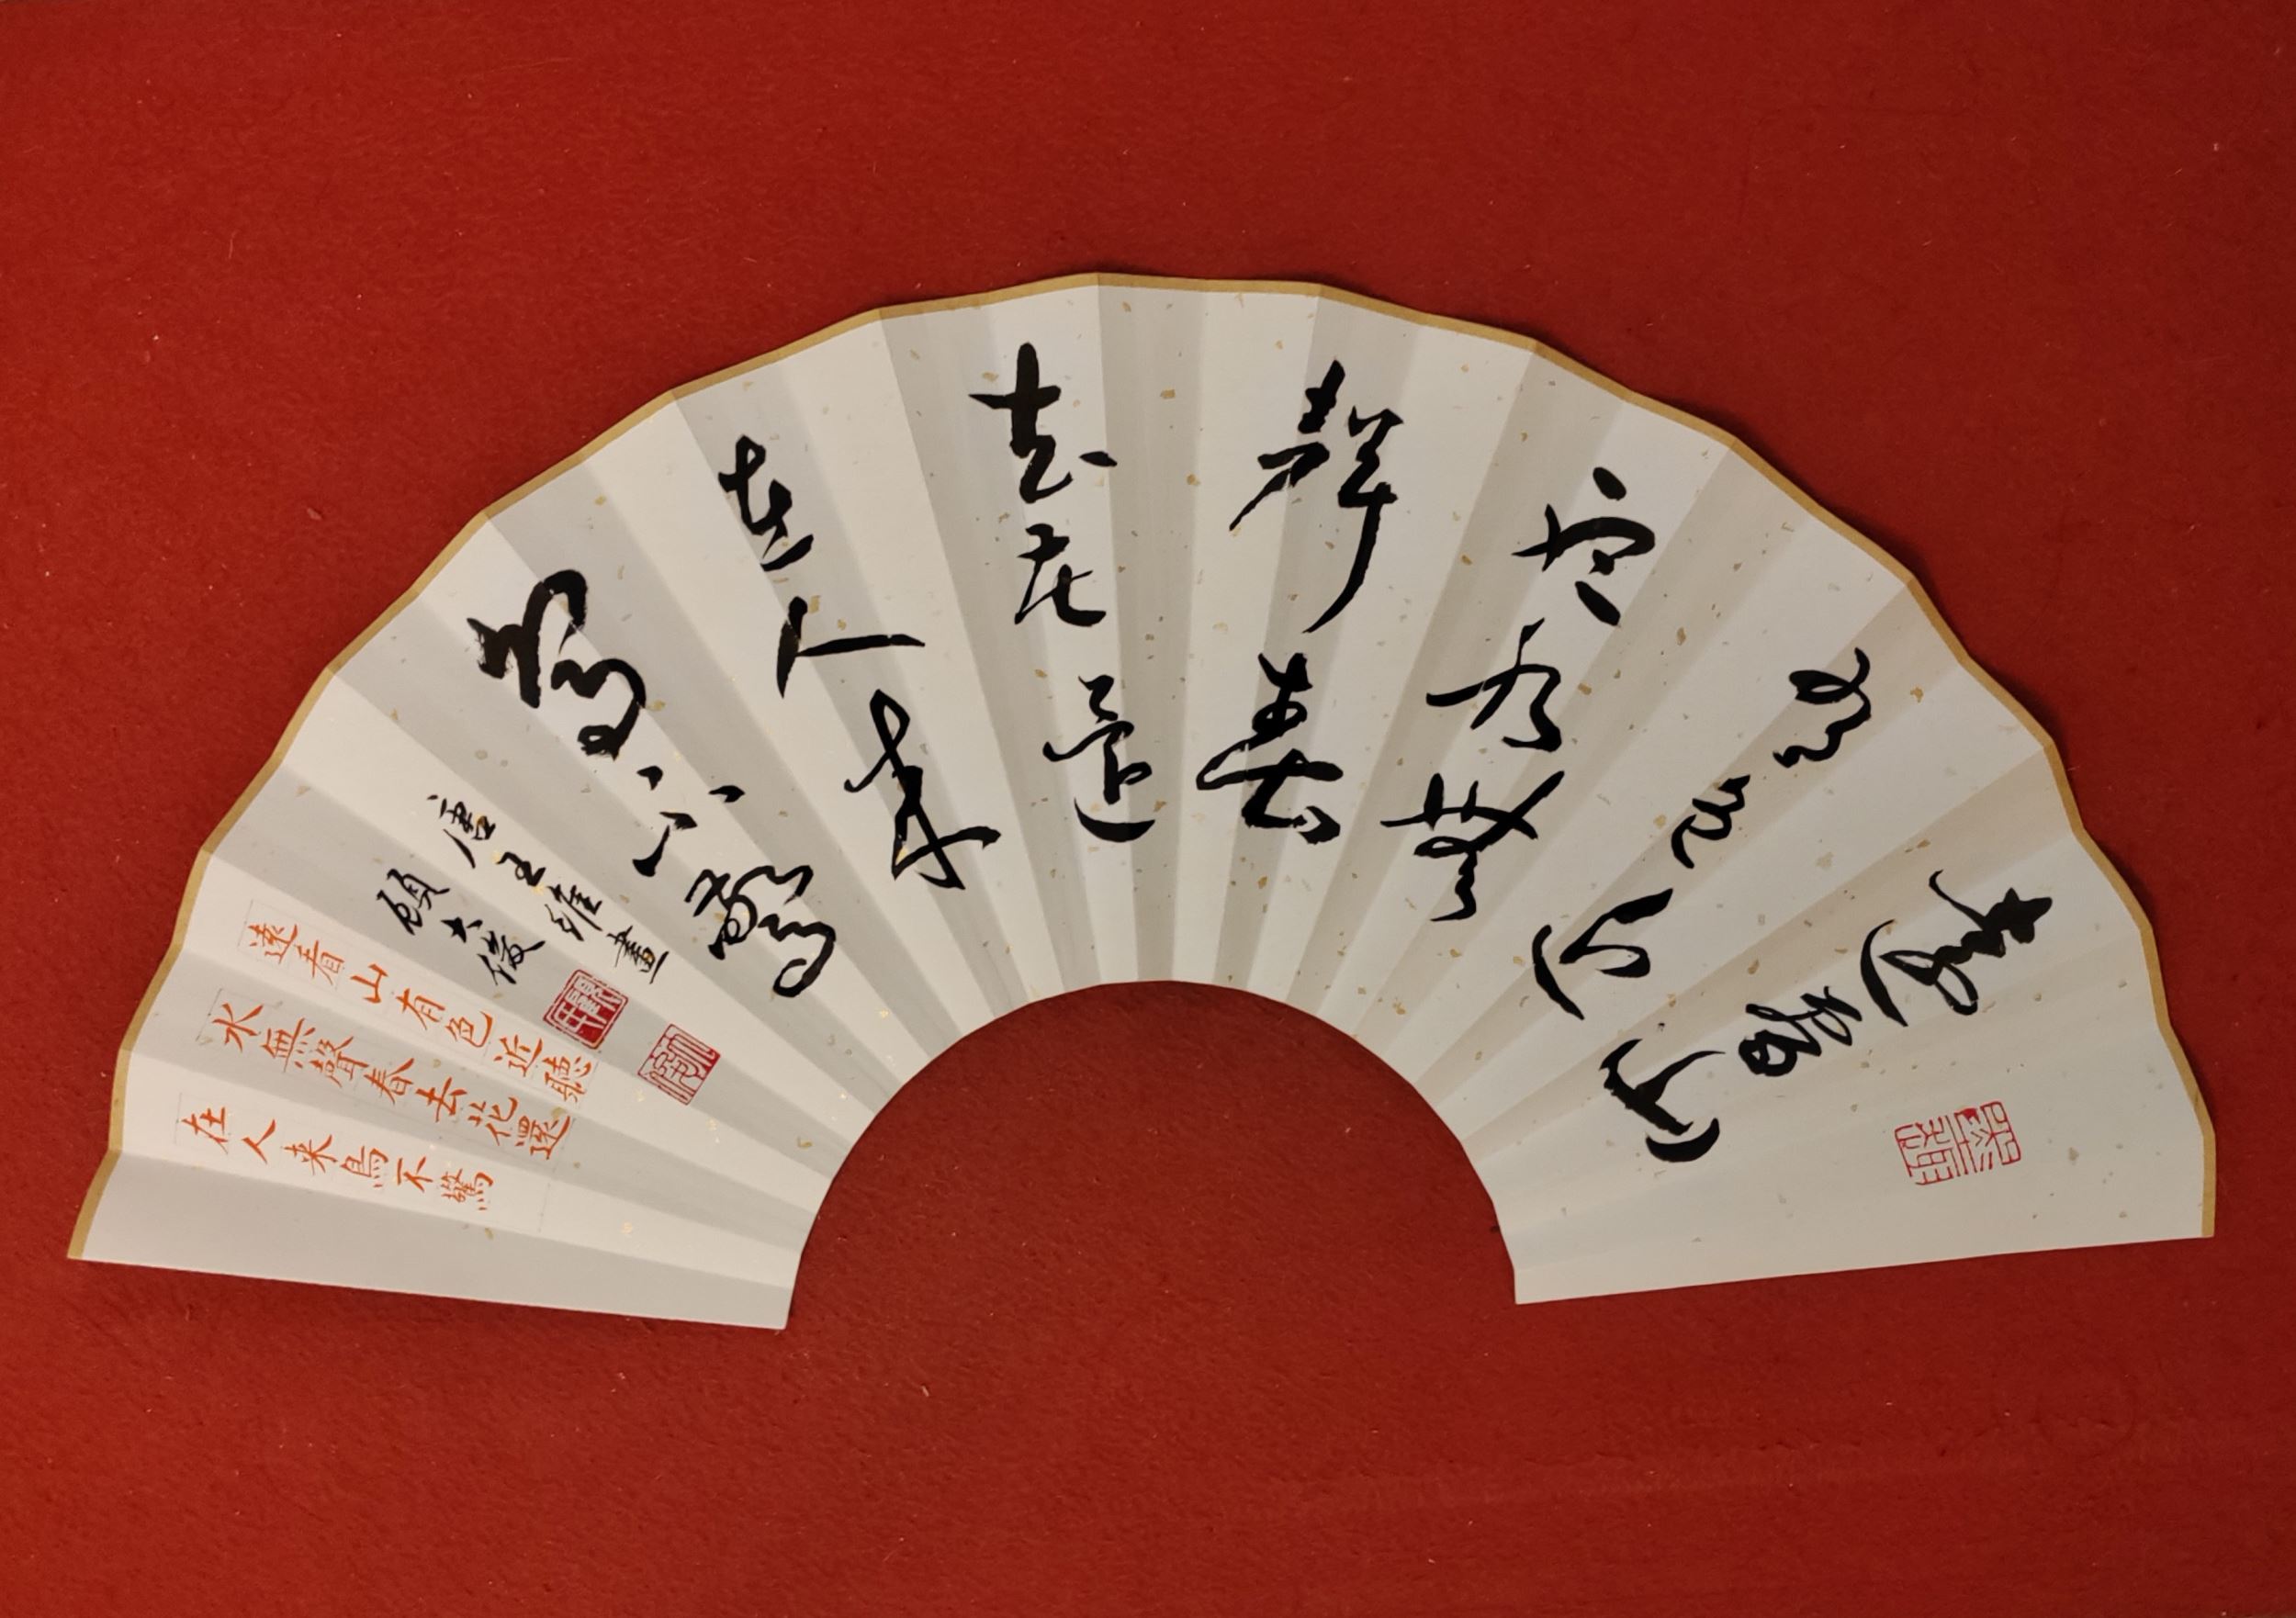 遠看山
有色近
聽水無
聲春
去花還
在人來
鳥不驚
唐王維畫
顧大俊
遠看山有色近聽
水無聲春去花還
在人来鳥不驚